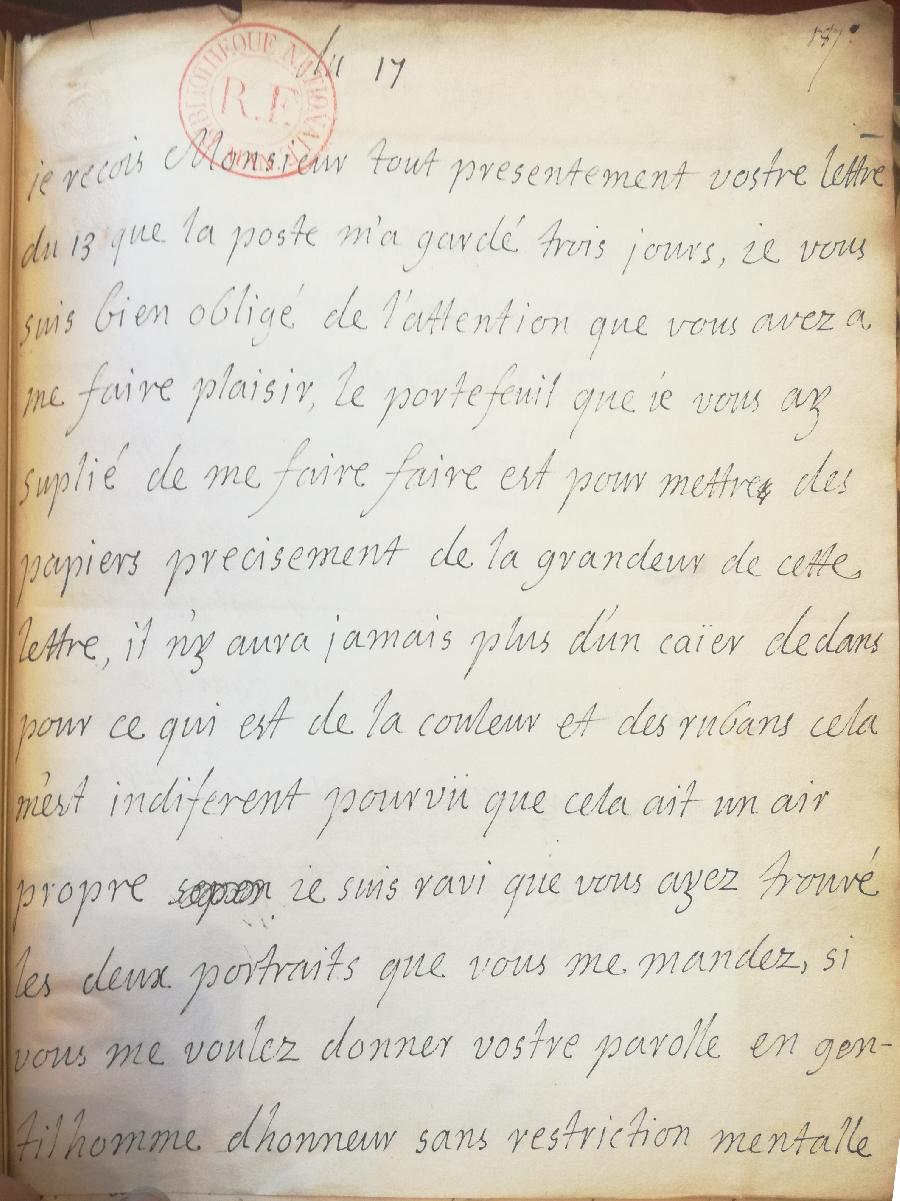 du 17
je recois Monsieur tout presentement vostre lettre
du 13 que la poste m'a gardé trois jours, ie vous
suis bien obligé de l'attention que vous avez a
me faire plaisir, le portefeuil que ie vous ay
suplié de me faire faire est pour mettre des
papiers precisement de la grandeur de cette
lettre, il n'y aura jamais plus d'un caïer dedans
pour ce qui est de la couleur et des rubans cela
m'est indiferent pourvü que cela ait un air
propre ie suis ravi que vous ayez trouvé
les deux portraits que vous me mandez, si
vous me voulez donner vostre parolle en gen-
tilhomme dhonneur sans restriction mentalle
BIBLIOTHEQUE NATIONALE
R.F.